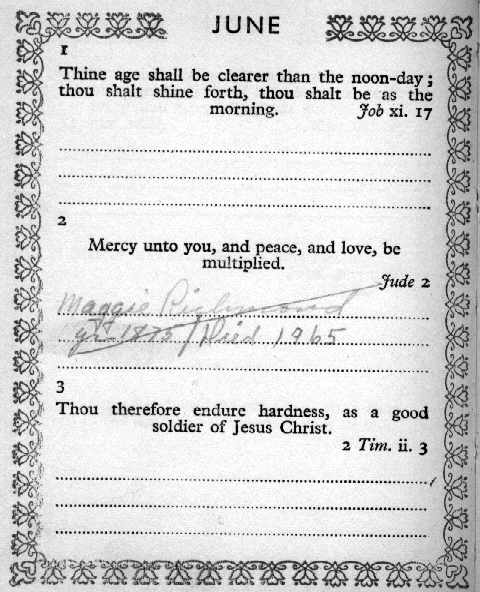 JUNE
1
Thine age shall be clearer than the noon-day;
thou shalt shine forth, thou shalt be as the
morning. Job xi. 17
2
Mercy unto you, and peace, and love, be
multiplied.
Jude 2
Maggie Richmond
1875 / Died 1965
3
Thou therefore endure hardness, as a good
soldier of Jesus Christ.
2 Tim. ii. 3